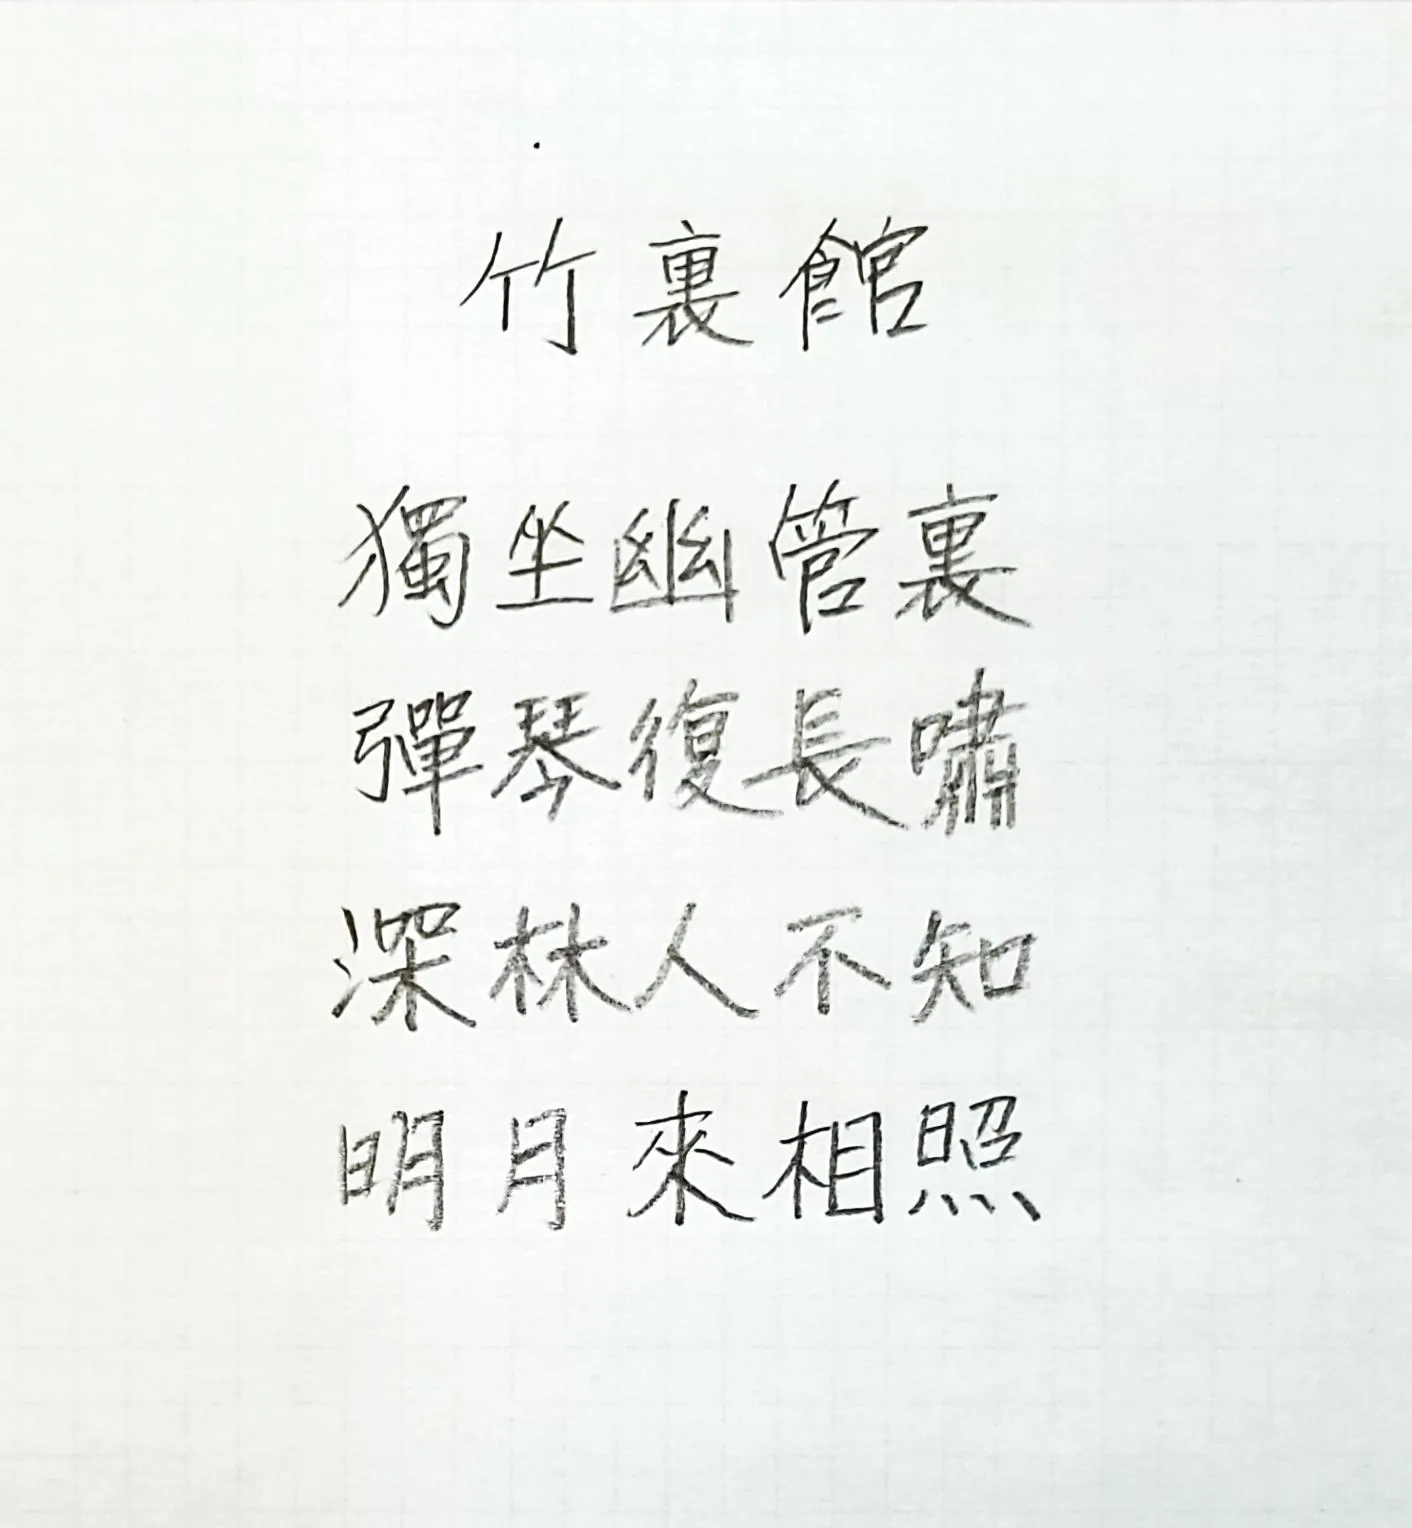 竹裏館
獨坐幽管裏
彈琴復長嘯
深林人不知
明月來相照